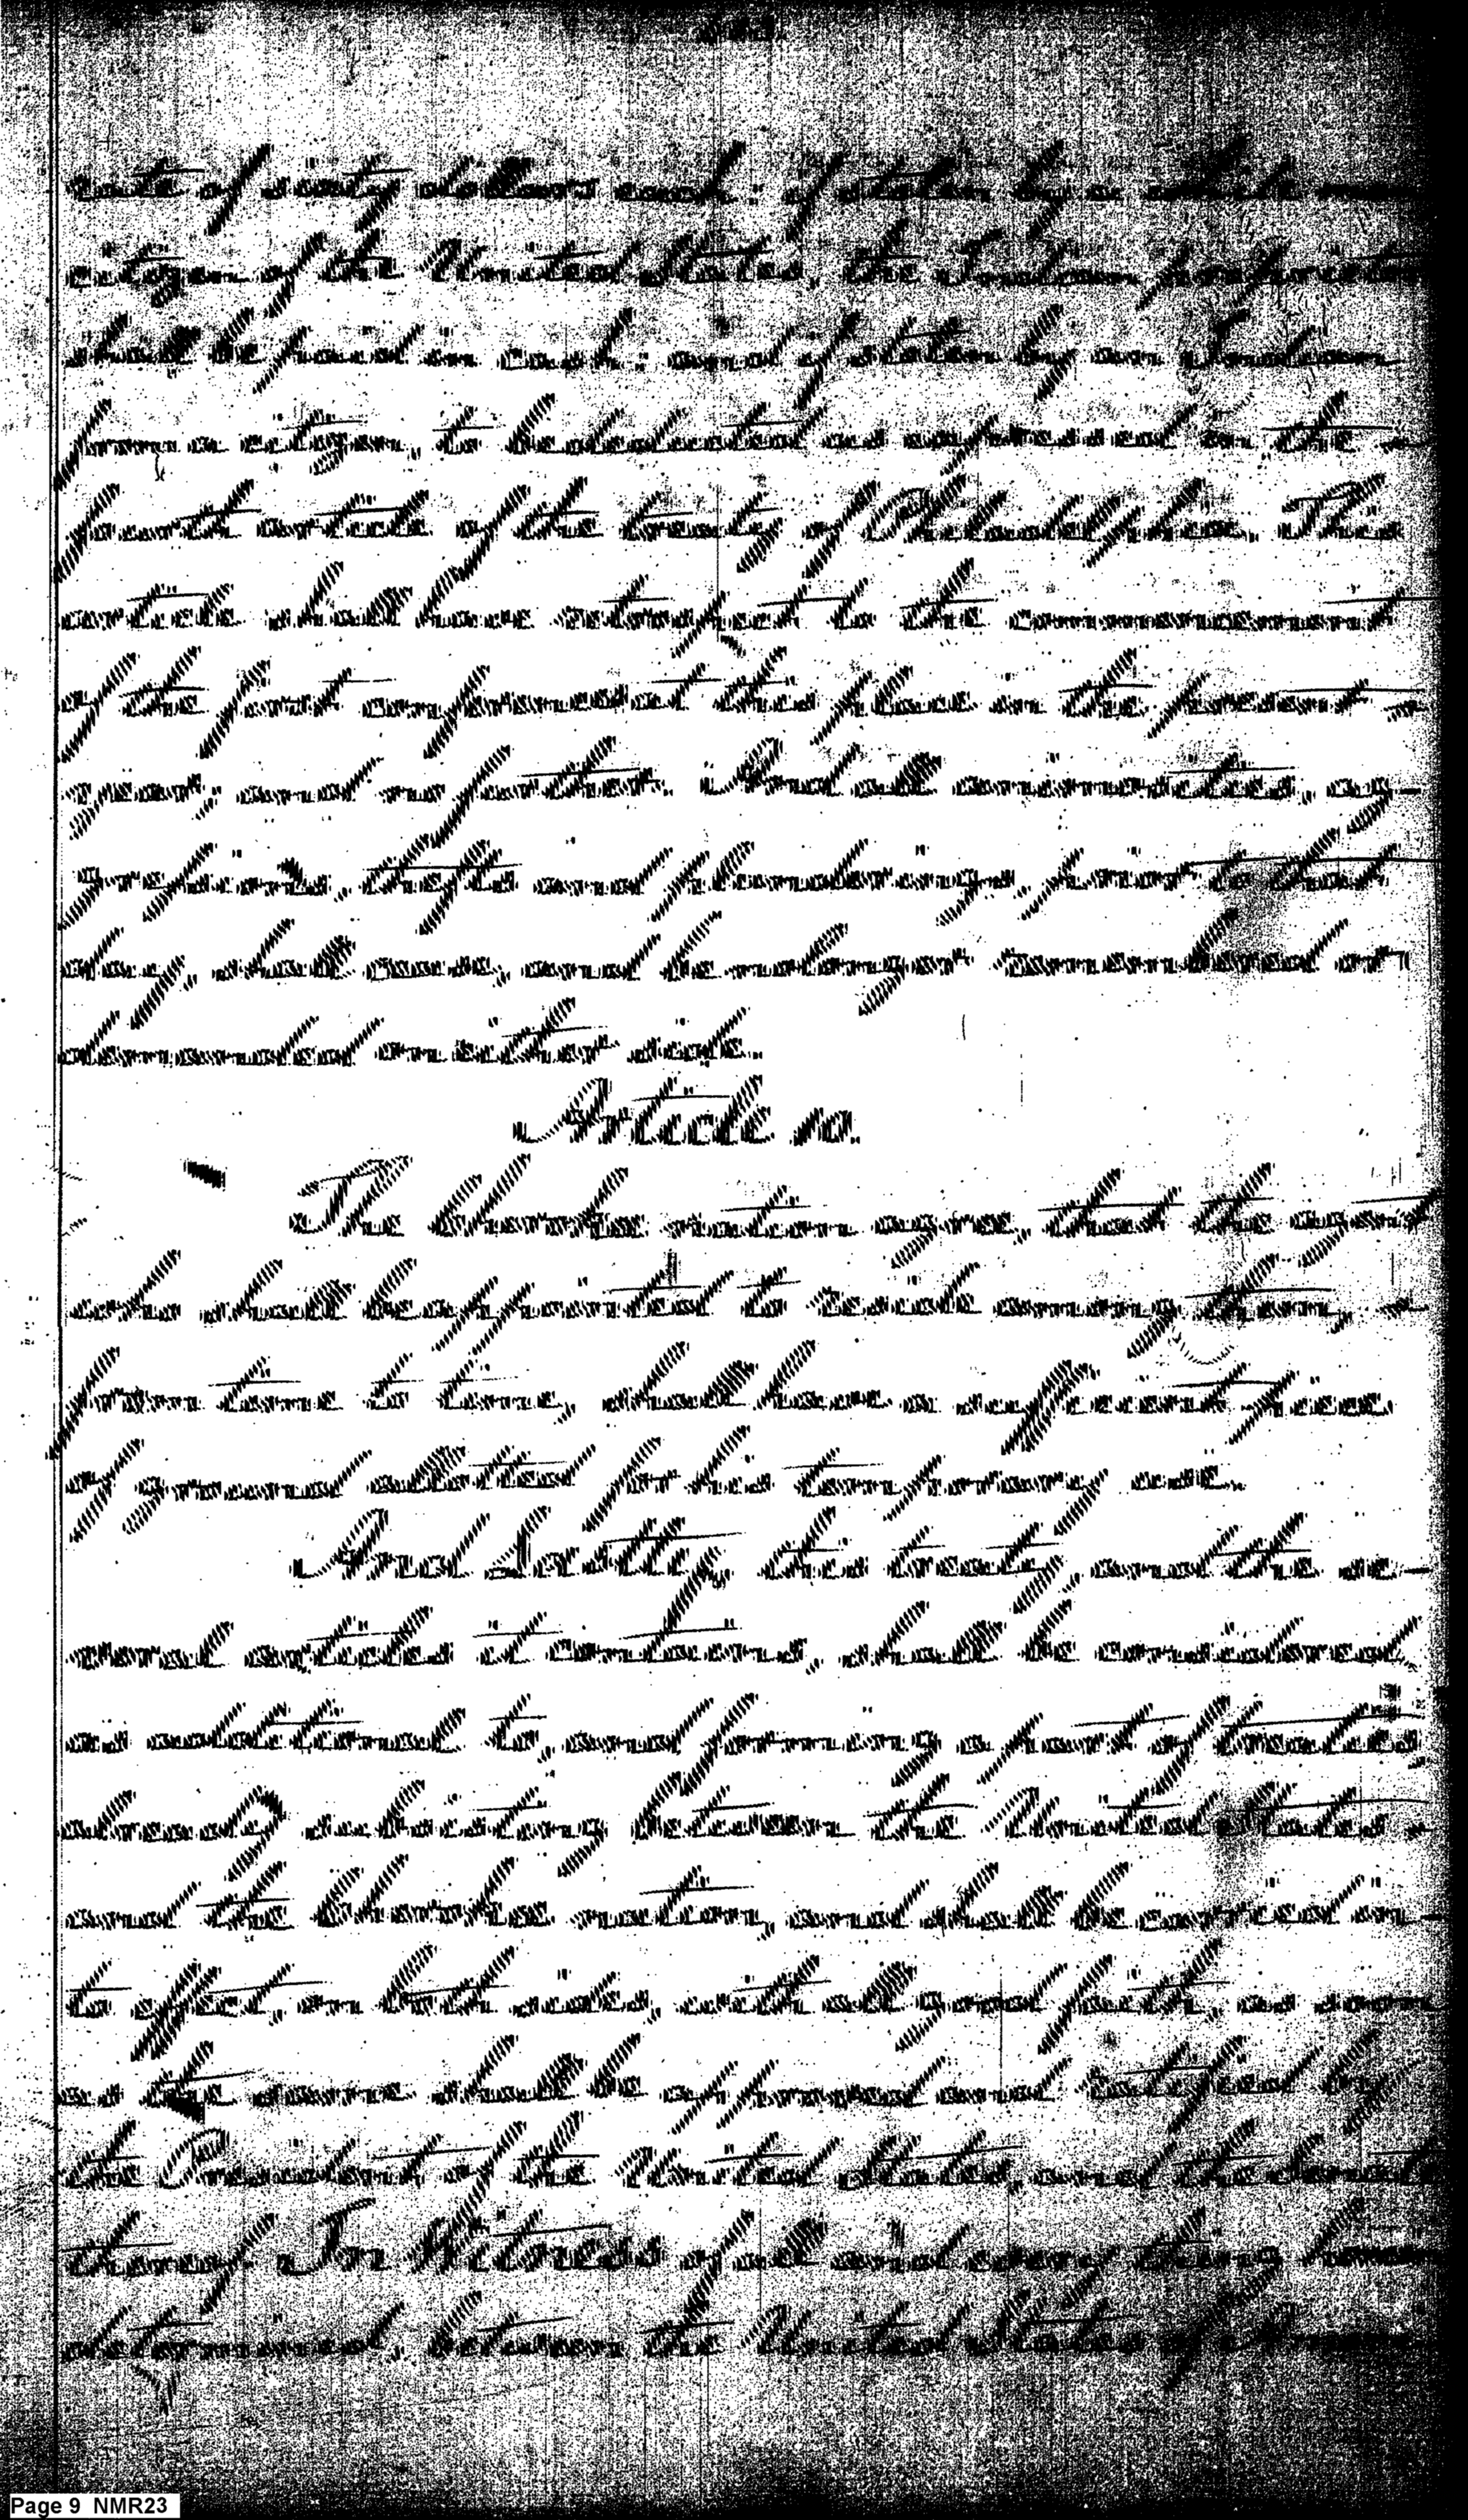 rate of sixty dollars each; if stolen by a white man
citizen of the United States, the Indian proprietor
shall be paid in cash; and if stolen by an Indian
from a citizen, to be deducted as expressed in the
fourth article of the treaty of Philadelphia. This
article shall have retrospect to the commencement
of the first conferences at this place in the present
year, and no further. And all animosities, ag-
gressions, thefts and plunderings, prior to that
day, shall cease, and be no longer remembered or
demanded on either side.
Article 10.
The Cherokee nation agree, that the agent
who shall be appointed to reside among them,
from time to time, shall have a sufficient piece
of ground allotted for his temporary use.
And Lastly, this treaty, and the se-
veral articles it contains, shall be considered
as additional to, and forming a part of treaties
already subsisting between the United States
and the Cherokee nation, and shall be carried in-
to effect, on both sides, with all good faith, as soon
as the same shall be approved and ratified by
the President of the United States, and the Senate
thereof. In Witness of all and every thing herein
determined, between the United States of America
Page 9 NMR23